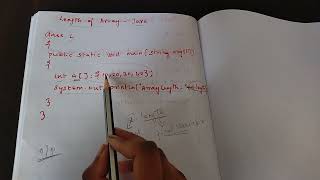 Length of Array - Java
class L
{
public static void main (String args[])
{
int a[] = { 10, 20, 30, 40 };
System.out.println("Array Length:
}
}
length
o/p